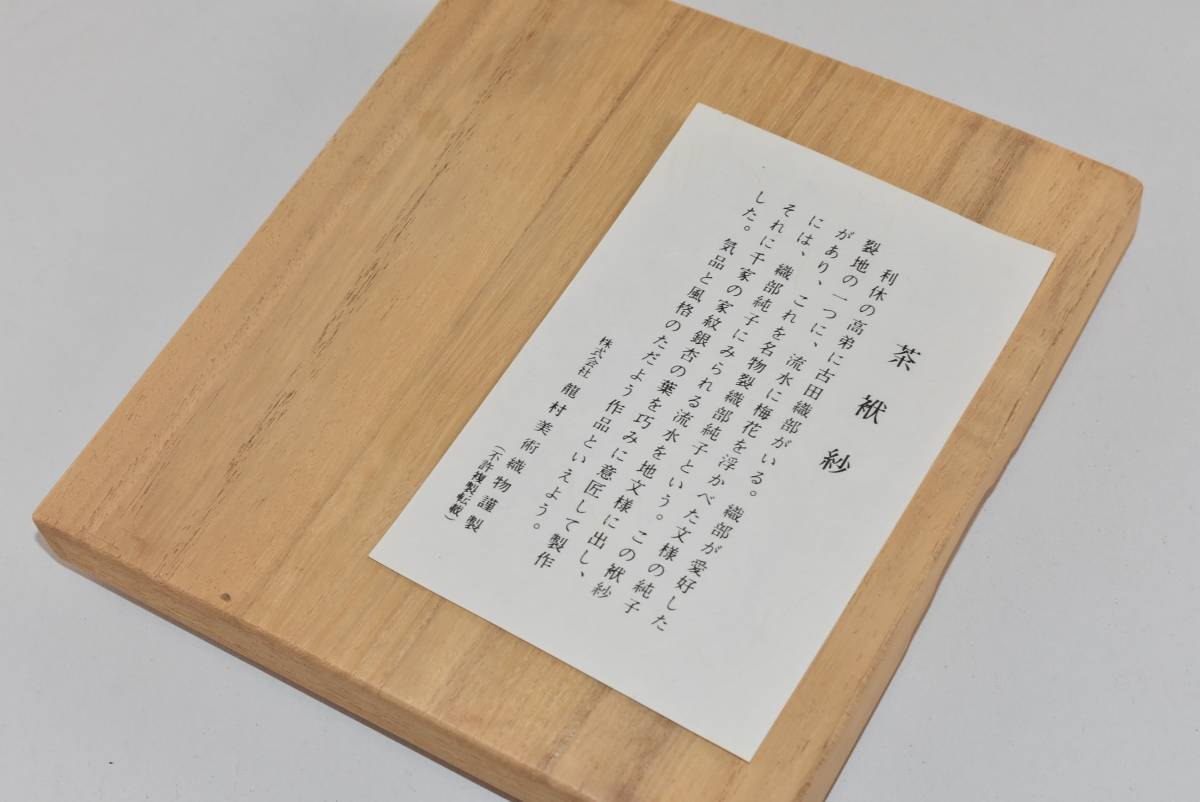 茶袱紗
利休の高弟に古田織部がいる。織部が愛好した
裂地の一つに、流水に梅花を浮かべた文様の純子
があり、これを名物裂織部純子という。この袱紗
には、織部純子にみられる流水を地文様に出し、
それに千家の家紋銀杏の葉を巧みに意匠して製作
した。気品と風格のただよう作品といえよう。
株式会社 龍村美術織物謹製
(不許複製転載)